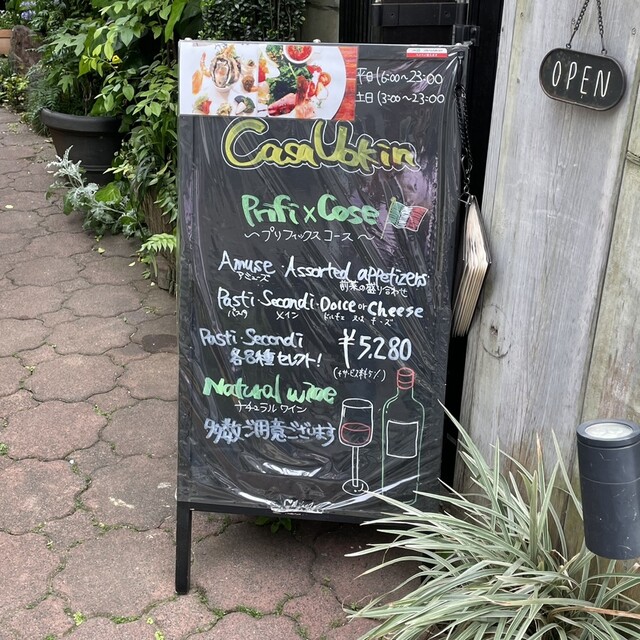 平日 16:00~23:00
土日 13:00~23:00
OPEN
Casa Ubkin
Prifi×Cose
~プリフィックスコース~
Amuse・Assorted appetizers
アミューズ 前菜の盛り合わせ
Pasti・Secondi・Dolce or Cheese
パスタ メイン ドルチェ チーズ
Pasti・Secondi
各8種セレクト!
¥5,280
(+サービス料5%)
Natural wine
ナチュラルワイン
多数ご用意ございます